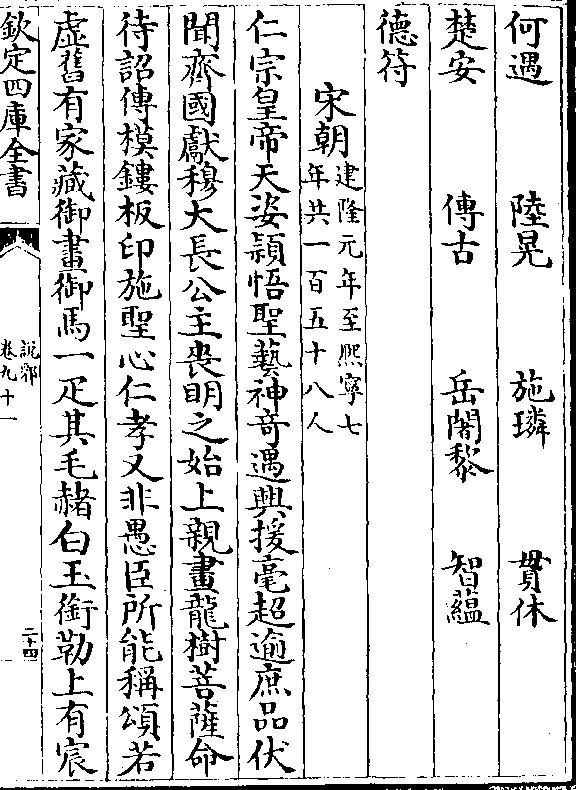 何遇　陸晃　施璘　貫休
楚安　傳古　岳闍黎　智蘊
德符
宋朝建隆元年至熙寧七
年共一百五十八人
仁宗皇帝天姿穎悟聖藝神竒遇興援毫超逾庶品伏
聞齊國獻穆大長公主喪明之始上親畫龍樹菩薩命
待詔傳模鏤板印施聖心仁孝又非愚臣所能稱頌若
虛舊有家藏御畫御馬一疋其毛赭白玉銜勒上有宸
欽定四庫全書
說郛
卷九十一
二十四